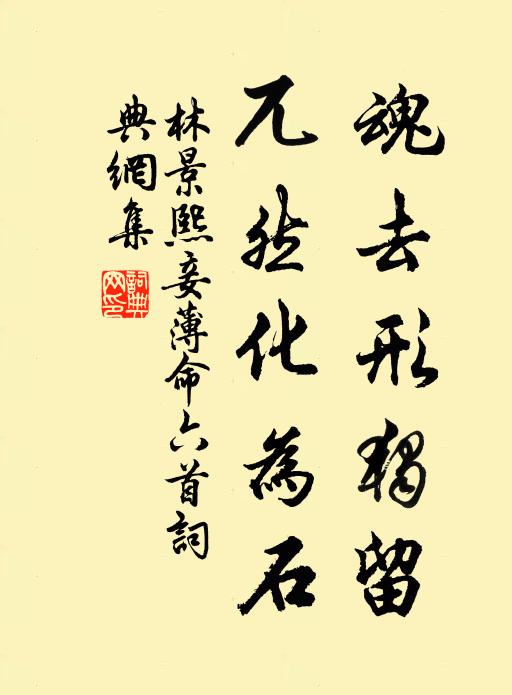 魂去形獨留
兀然化為石
林景熙妾薄命六首詞
典網集
詞典網印